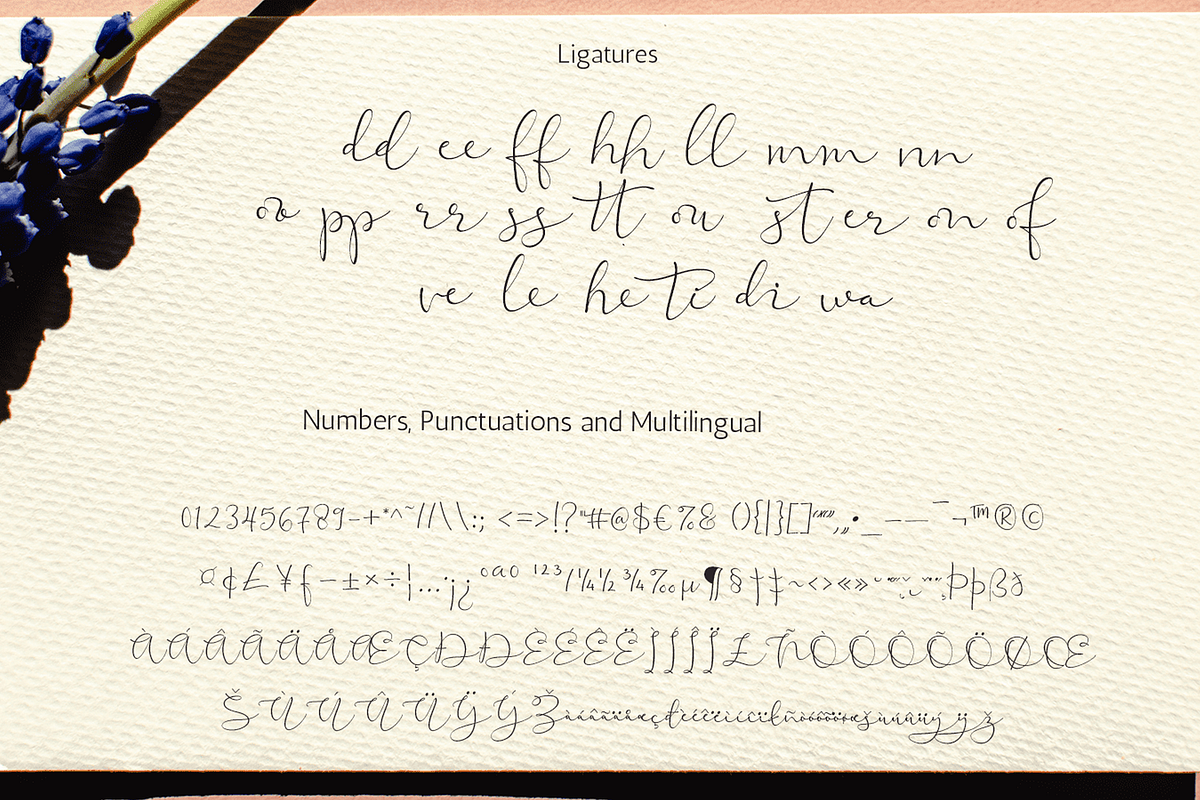 Ligatures
dd ee ff hh ll mm nn
oo pp rr ss tt ou st er on of
ve le he ti di wa
Numbers, Punctuations and Multilingual
0123456789-+*^~/|\\:; <=>!?"#@$€%& (){|}[]“”‘’„‚•_–—¯¬™®©
¤¢£¥ƒ−±×÷¦…·¡¿ºªº ¹²³/¼½¾‰µ¶§†‡~‹›«» ÞþßÐ
ÀÁÂÃÄÅÆÇÐĐÈÉÊËÌÍÎÏŁÑÒÓÔÕÖØŒ
ŠÙÚÛÜŸÝŽàáâãäåæçđèéêëìíîïłñòóôõöøœšùúûüýÿž